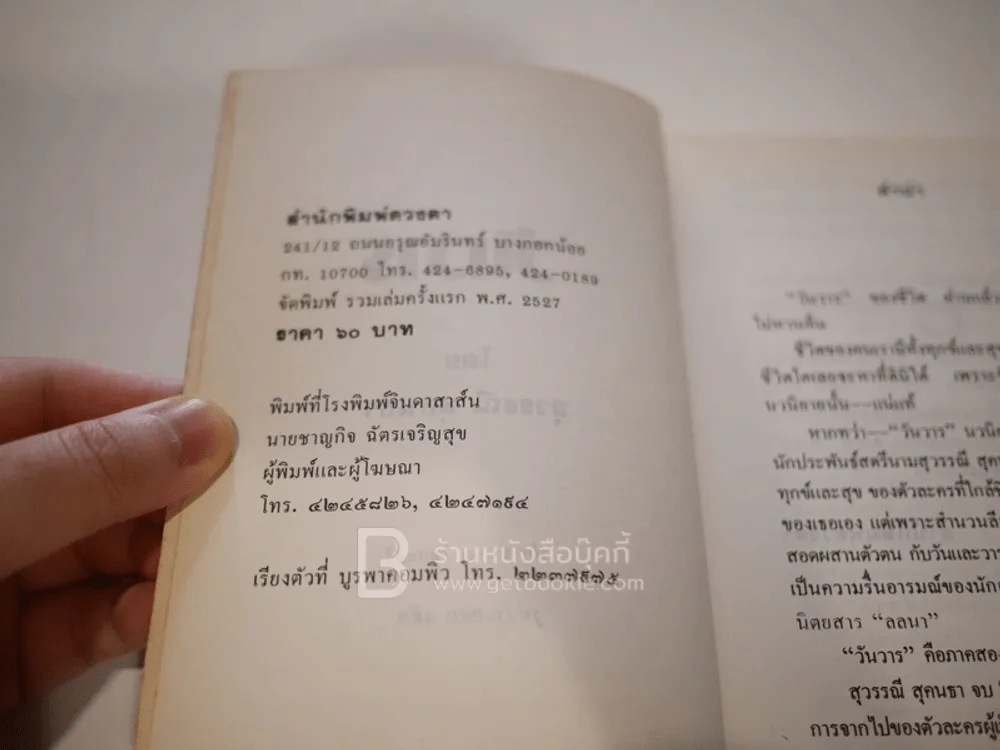 สำนักพิมพ์ดวงตา
241/12 ถนนอรุณอัมรินทร์ บางกอกน้อย
กท. 10700 โทร. 424-6895, 424-0189
จัดพิมพ์ รวมเล่มครั้งแรก พ.ศ. 2527
ราคา ๖๐ บาท
พิมพ์ที่โรงพิมพ์จินดาสาส์น
นายชาญกิจ ฉัตรเจริญสุข
ผู้พิมพ์และผู้โฆษณา
โทร. ๔๒๔๕๘๒๖, ๔๒๔๗๑๙๔
เรียงตัวที่ บูรพาคอมพิว โทร. ๒๒๓๗๙๗๕
B ร้านหนังสือบุ๊คกี้
www.getbookie.com
“วันวาร” ของชีวิต ผ่านแล้ว
ไม่หวนคืน
ชีวิตของคนเรามีทั้งทุกข์และสุข
ชีวิตใดเลยจะหาที่ดินิได้ เพราะ
นวนิยายนั้น—แน่แท้
หากทว่า—“วันวาร”
นักประพันธ์สตรีนามสุวรรณี
ทุกข์และสุข ของตัวละครที่ใกล้
ของเธอเอง แต่เพราะสำนวน
สอดผสานตัวตน กับวันและวา
เป็นความรื่นอารมณ์ของนัก
นิตยสาร “ลลนา”
“วันวาร” คือภาคสอง
สุวรรณี สุคนธา จบ
การจากไปของตัวละคร